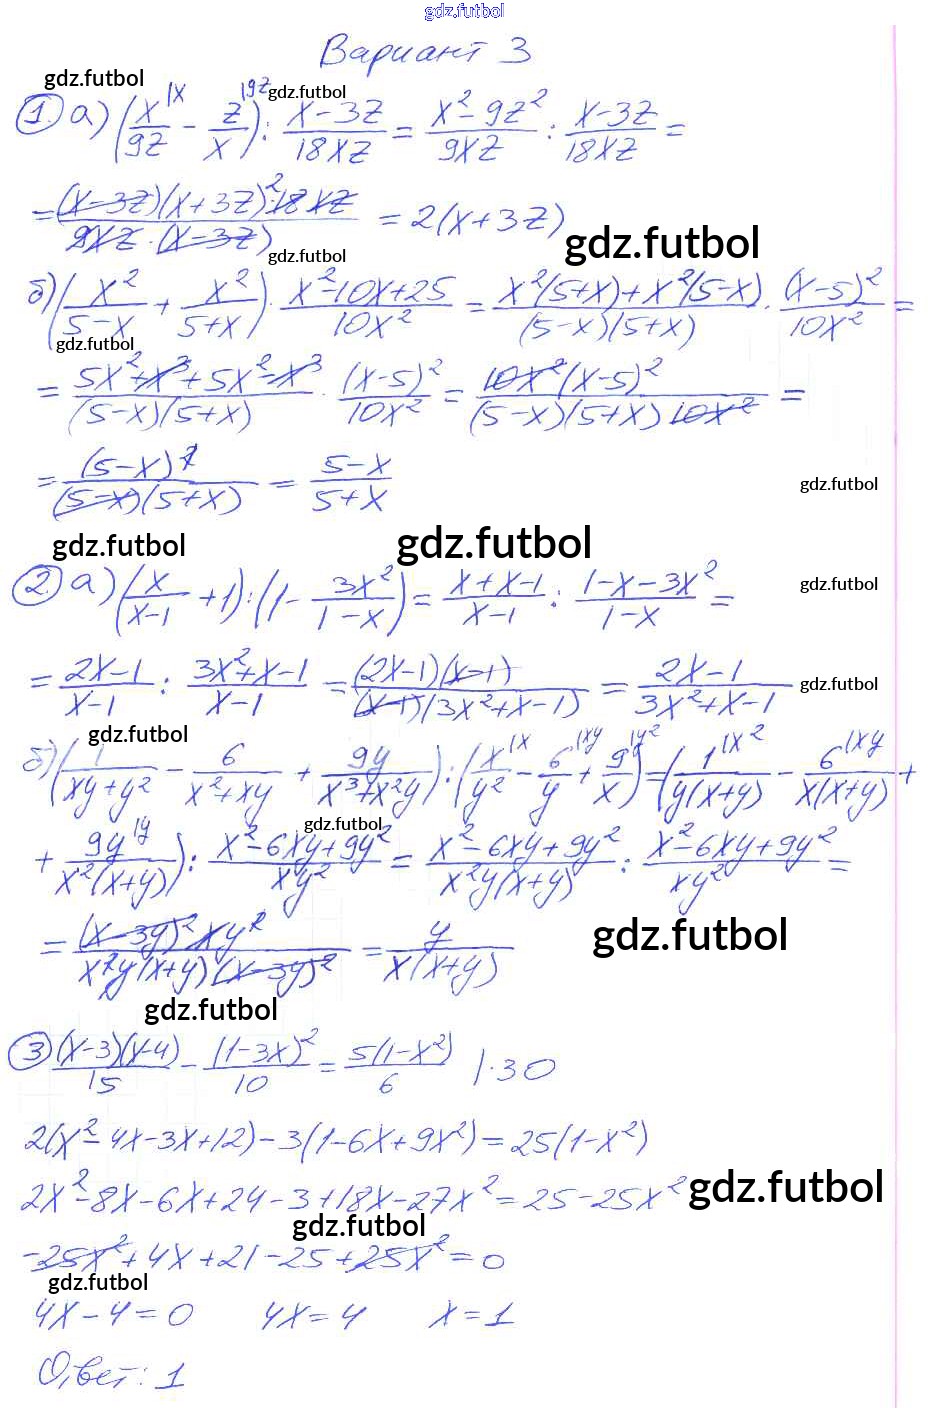 gdz.futbol
Вариант 3
gdz.futbol
1. а) (x/9z |x − z/x |9z) : (x−3z)/(18xz) = (x²−9z²)/(9xz) : (x−3z)/(18xz) =
gdz.futbol
= ((x−3z)(x+3z)² · 18xz)/(9xz · (x−3z)) = 2(x+3z)
gdz.futbol
gdz.futbol
б) (x²/(5−x) + x²/(5+x)) · (x²−10x+25)/(10x²) = (x²(5+x)+x²(5−x))/((5−x)(5+x)) · (x−5)²/(10x²) =
gdz.futbol
= (5x²+x³+5x²−x³)/((5−x)(5+x)) · (x−5)²/(10x²) = (10x²(x−5)²)/((5−x)(5+x)10x²) =
= (5−x)²/((5−x)(5+x)) = (5−x)/(5+x)
gdz.futbol
gdz.futbol
gdz.futbol
2. а) (x/(x−1) + 1) : (1 − 3x²/(1−x)) = (x+x−1)/(x−1) : (1−x−3x²)/(1−x) =
gdz.futbol
= (2x−1)/(x−1) : (3x²+x−1)/(x−1) = ((2x−1)(x−1))/((x−1)(3x²+x−1)) = (2x−1)/(3x²+x−1)
gdz.futbol
gdz.futbol
б) (1/(xy+y²) − 6/(x²+xy) + 9y/(x³+x²y)) : (x/y² |x − 6/y |xy + 9/x |y²) = (1/(y(x+y)) |x² − 6/(x(x+y)) |xy +
gdz.futbol
+ 9y/(x²(x+y)) |y) : (x²−6xy+9y²)/(xy²) = (x²−6xy+9y²)/(x²y(x+y)) : (x²−6xy+9y²)/(xy²) =
= ((x−3y)² xy²)/(x²y(x+y)(x−3y)²) = y/(x(x+y))
gdz.futbol
gdz.futbol
3. (x−3)(x−4)/15 − (1−3x)²/10 = 5(1−x²)/6 |·30
2(x²−4x−3x+12)−3(1−6x+9x²)=25(1−x²)
2x²−8x−6x+24−3+18x−27x²=25−25x²
gdz.futbol
gdz.futbol
−25x²+4x+21−25+25x²=0
gdz.futbol
4x−4=0 4x=4 x=1
Ответ: 1